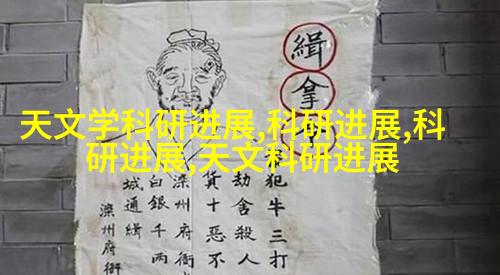 天文学科研进展,科研进展,科
研进展,天文科研进展
緝拿
犯牛三打
劫舍殺人
貨十惡不
滦州府衙
白銀千两
城通緝
滦州府衙